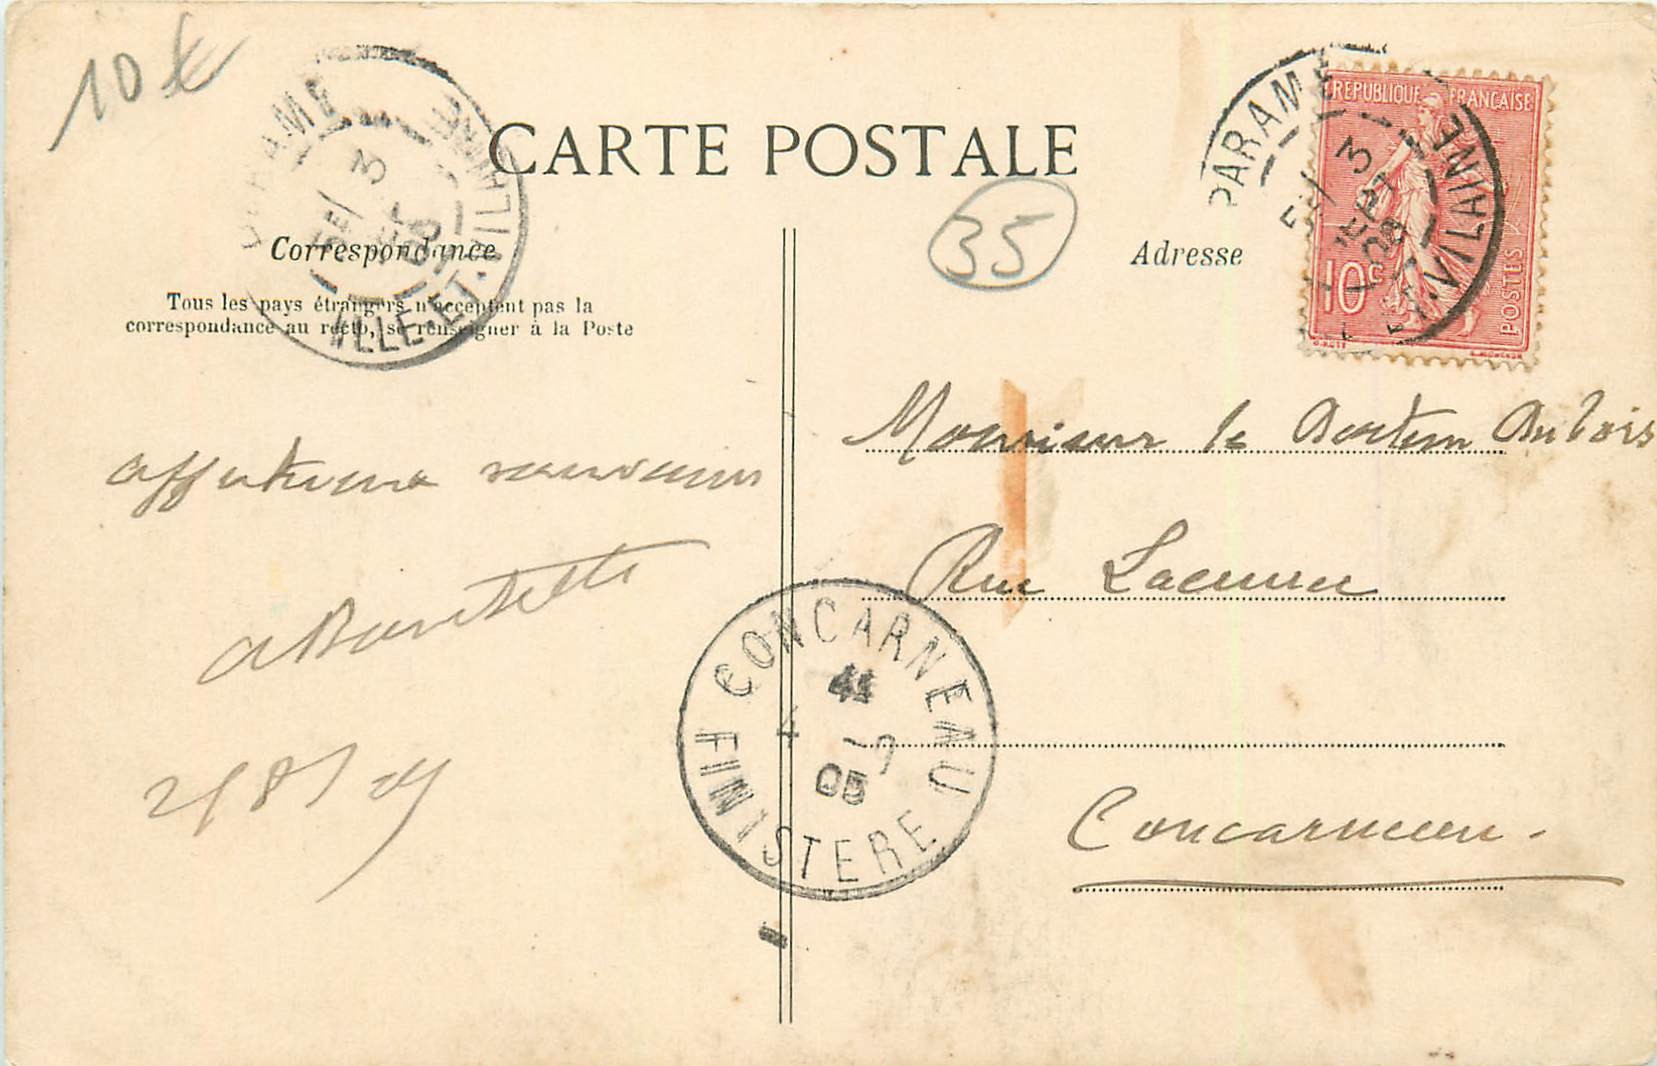 10 €
CARTE POSTALE
35
Correspondance
Adresse
Tous les pays étrangers n'acceptent pas la
correspondance au recto, se renseigner à la Poste
PARAMÉ
3
SEPT
ILLE-ET-VILAINE
PARAMÉ
3
SEPT
ILLE-ET-VILAINE
REPUBLIQUE FRANÇAISE
10c
POSTES
Monsieur le Docteur Dubois
Rue
Concarneau.
affectueux souvenirs
CONCARNEAU
4 -9
05
FINISTERE